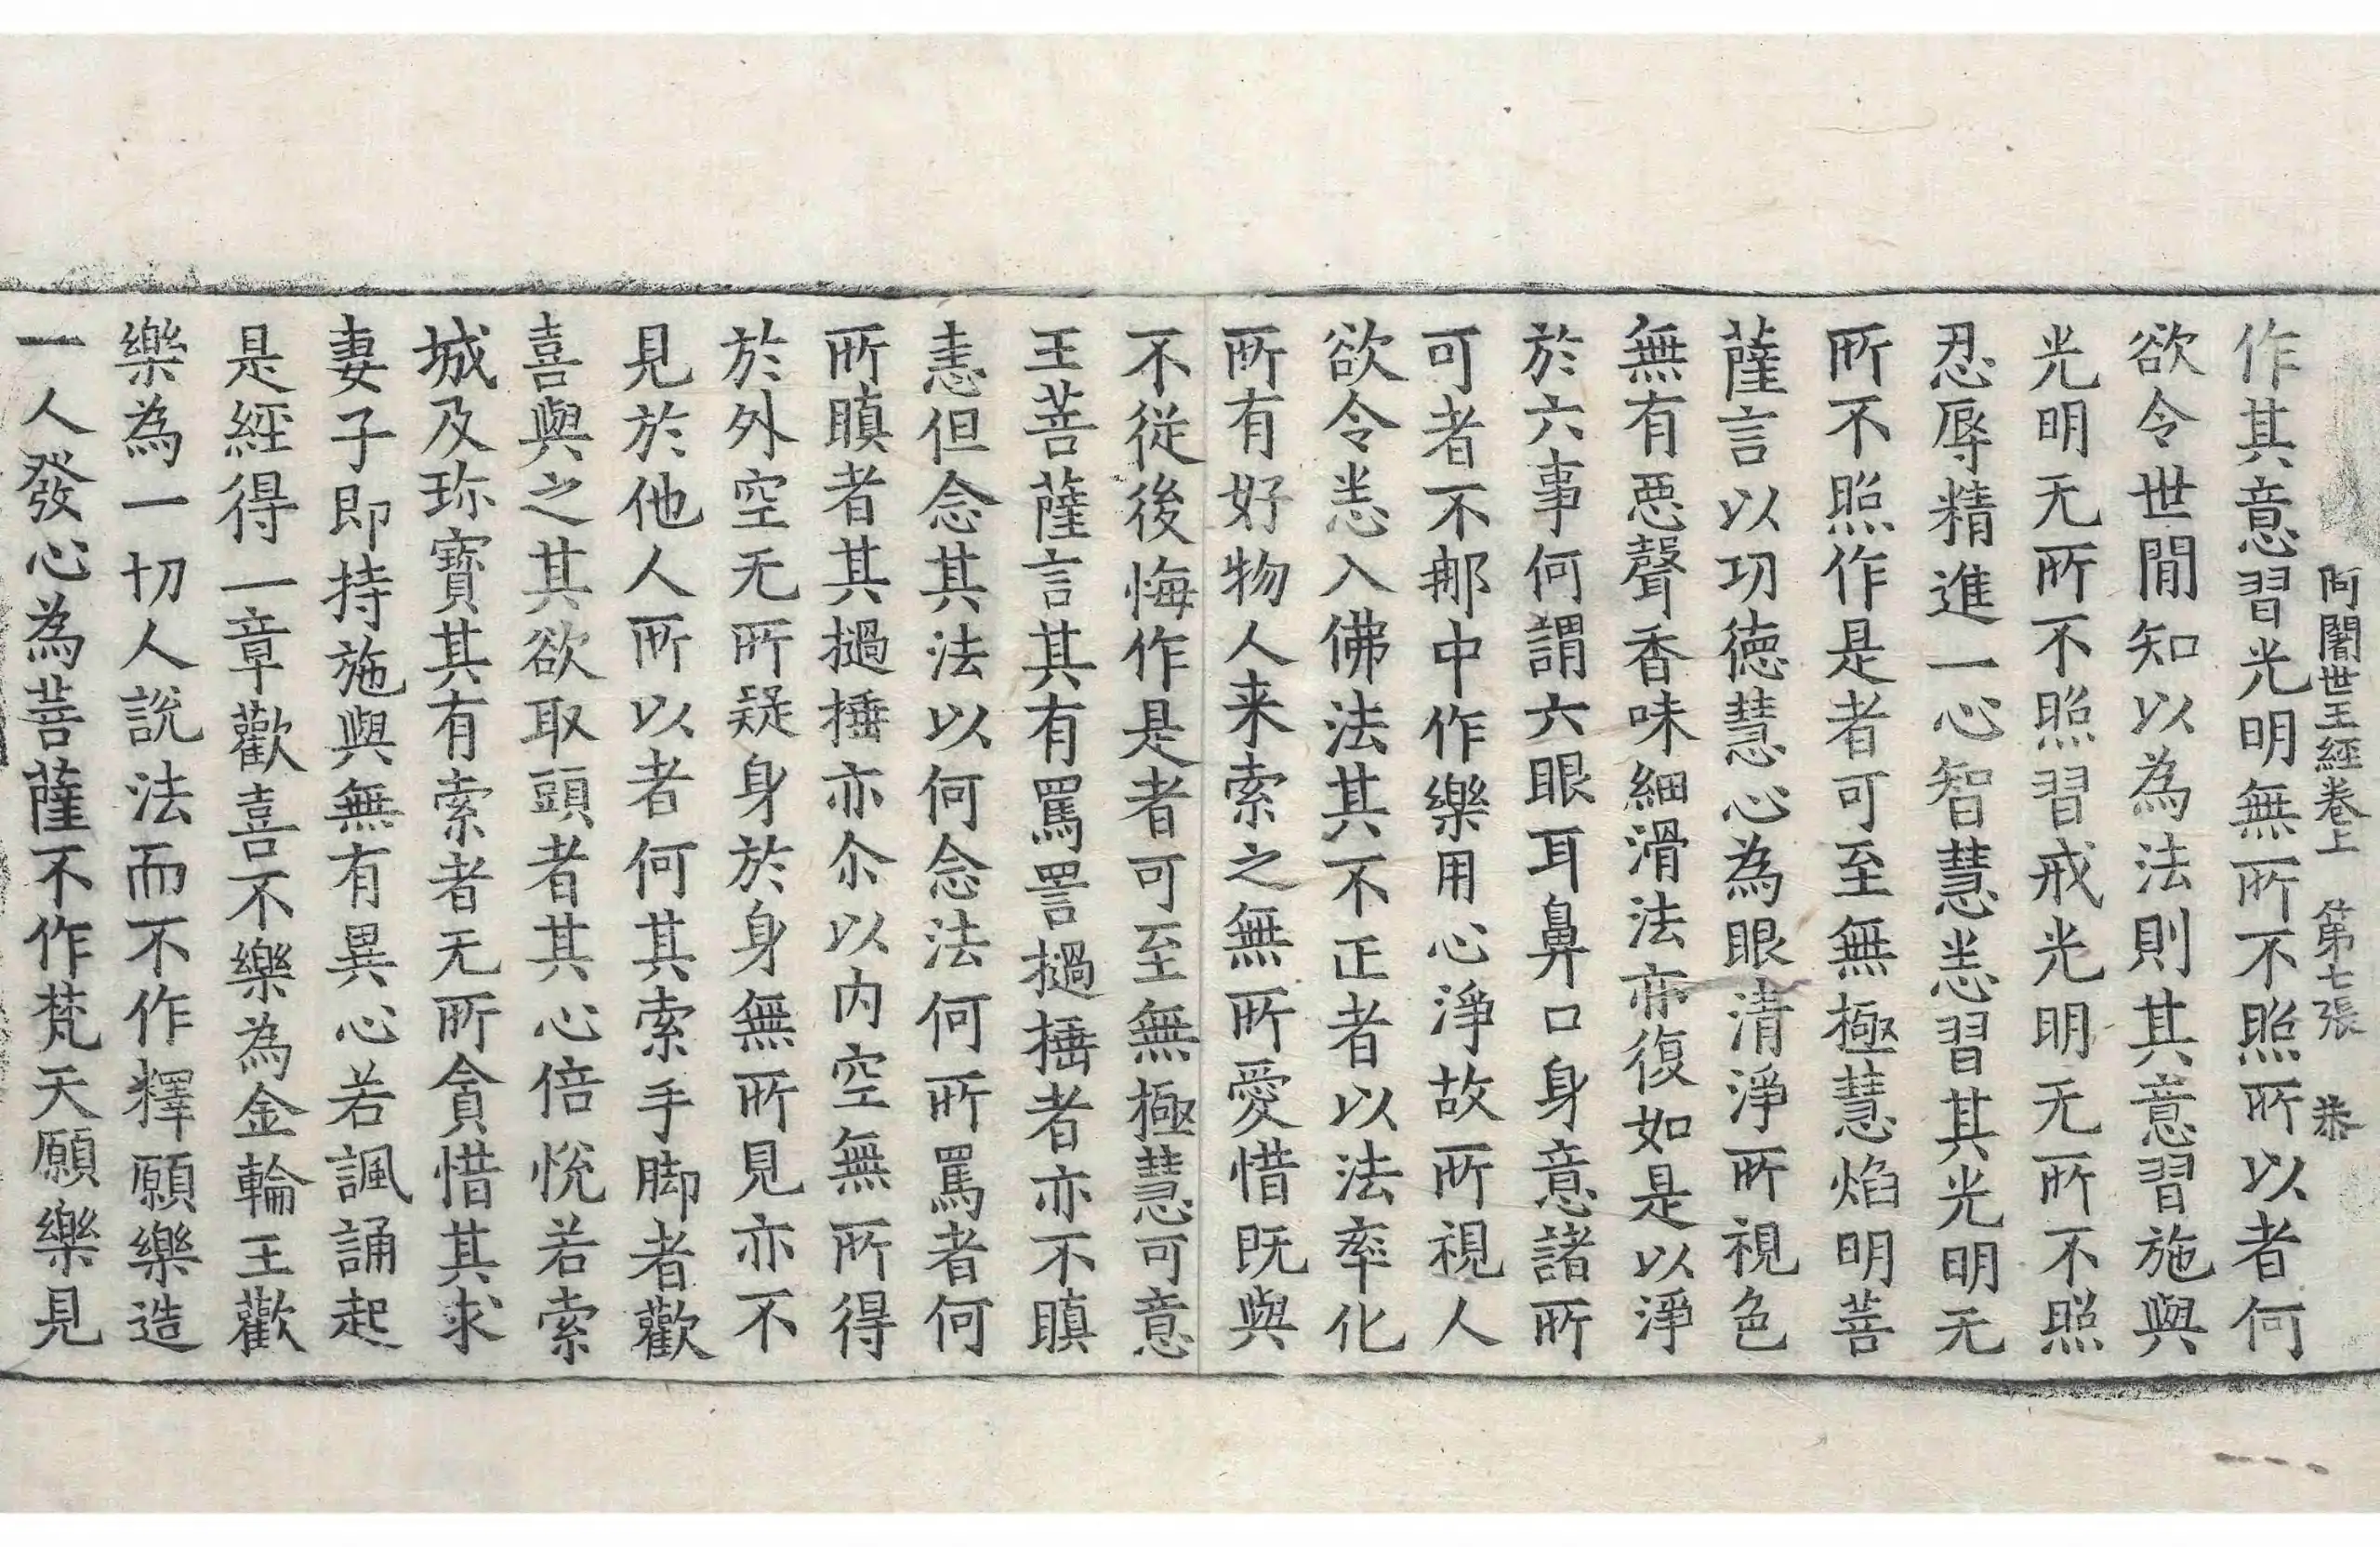 阿闍世王經卷上　第七張　恭
作其意習光明無所不照所以者何
欲令世間知以為法則其意習施與
光明无所不照習戒光明无所不照
忍辱精進一心智慧悉習其光明无
所不照作是者可至無極慧焰明菩
薩言以功徳慧心為眼清淨所視色
無有惡聲香味細滑法亦復如是以淨
於六事何謂六眼耳鼻口身意諸所
可者不那中作樂用心淨故所視人
欲令悉入佛法其不正者以法率化
所有好物人来索之無所愛惜既與
不従後悔作是者可至無極慧可意
王菩薩言其有罵詈撾捶者亦不瞋
恚但念其法以何念法何所罵者何
所瞋者其撾捶亦尒以内空無所得
於外空无所疑身於身無所見亦不
見於他人所以者何其索手脚者歡
喜與之其欲取頭者其心倍悅若索
城及珎寶其有索者无所貪惜其求
妻子即持施與無有異心若諷誦起
是經得一章歡喜不樂為金輪王歡
樂為一切人說法而不作釋願樂造
一人發心為菩薩不作梵天願樂見